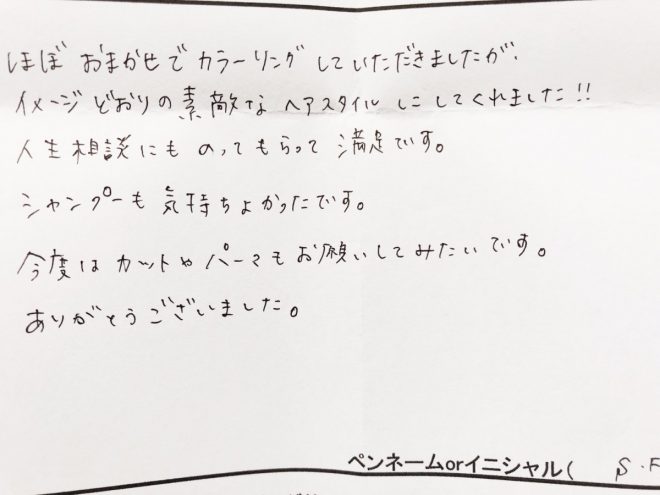 ほぼおまかせでカラーリングしていただきましたが、
イメージどおりの素敵なヘアスタイルにしてくれました!!
人生相談にものってもらって満足です。
シャンプーも気持ちよかったです。
今度はカットやパーマもお願いしてみたいです。
ありがとうございました。
ペンネームorイニシャル( S.F